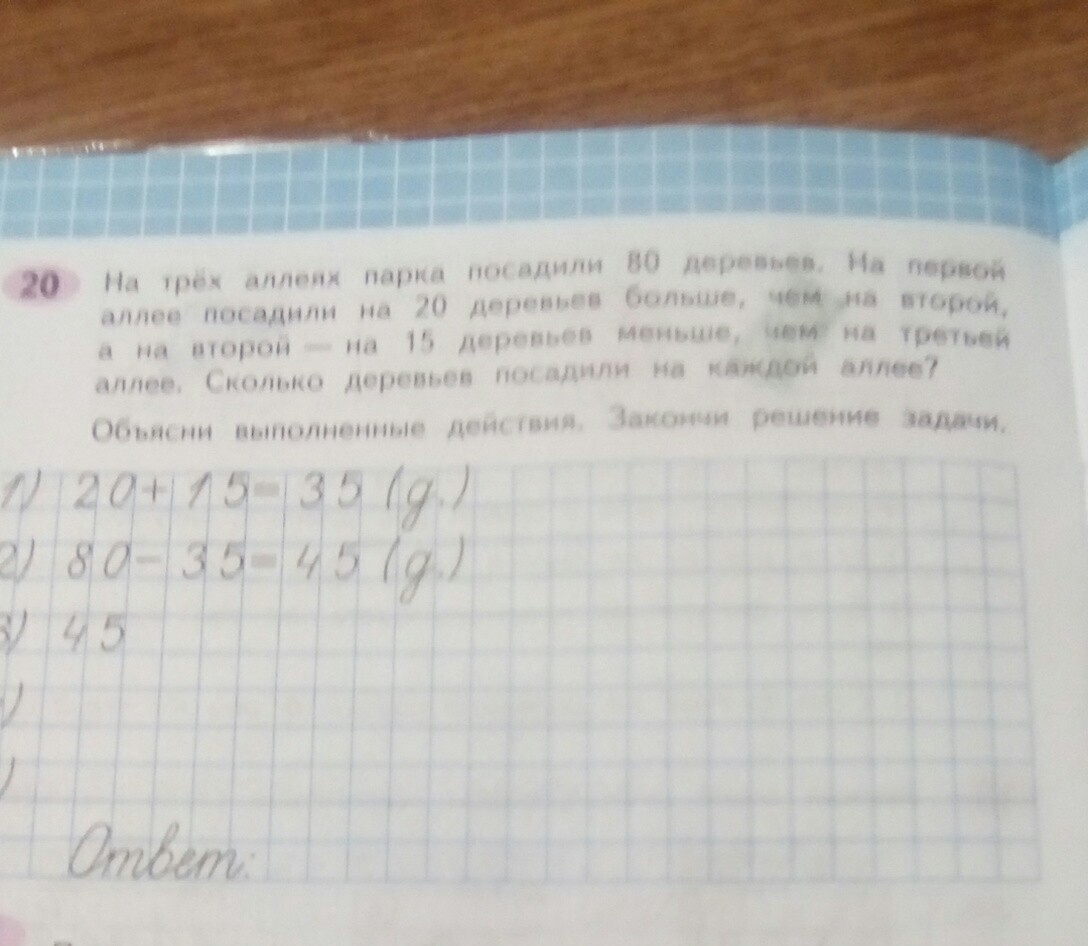 20 На трёх аллеях парка посадили 80 деревьев. На первой
аллее посадили на 20 деревьев больше, чем на второй,
а на второй — на 15 деревьев меньше, чем на третьей
аллее. Сколько деревьев посадили на каждой аллее?
Объясни выполненные действия. Закончи решение задачи.
1) 20+15=35 (д.)
2) 80-35=45 (д.)
3) 45
)
)
Ответ: